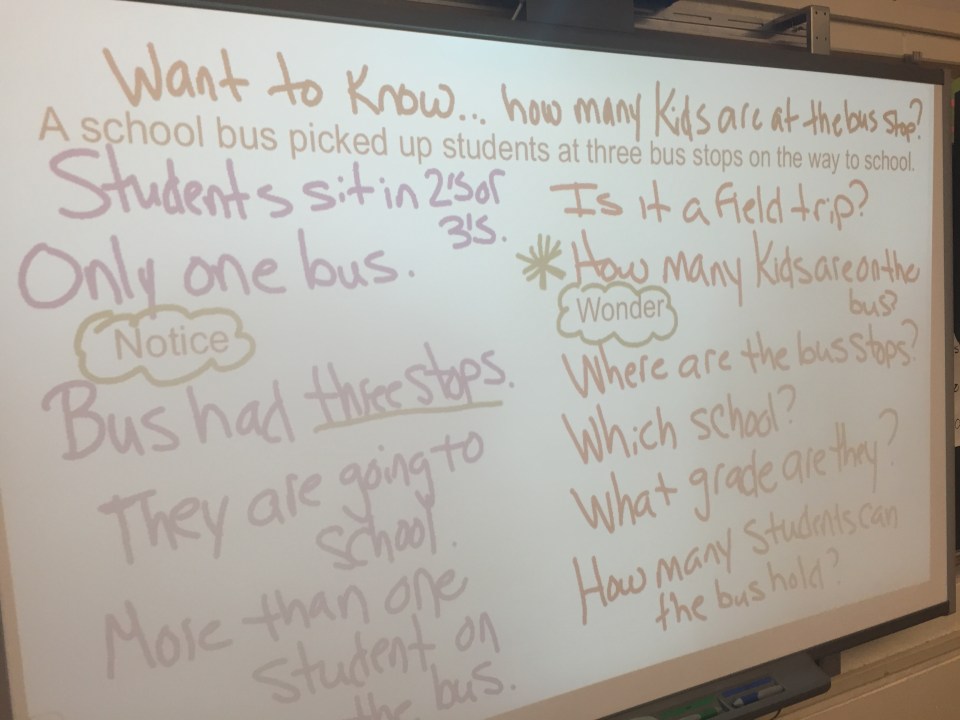 Want to Know... how many Kids are at the bus stop?
A school bus picked up students at three bus stops on the way to school.
Students sit in 2's or
3's.
Only one bus.
Notice
Bus had three stops.
They are going to
school.
More than one
student on
the bus.
Is it a field trip?
How many Kids are on the
bus?
Wonder
Where are the bus stops?
Which school?
What grade are they?
How many students can
the bus hold?